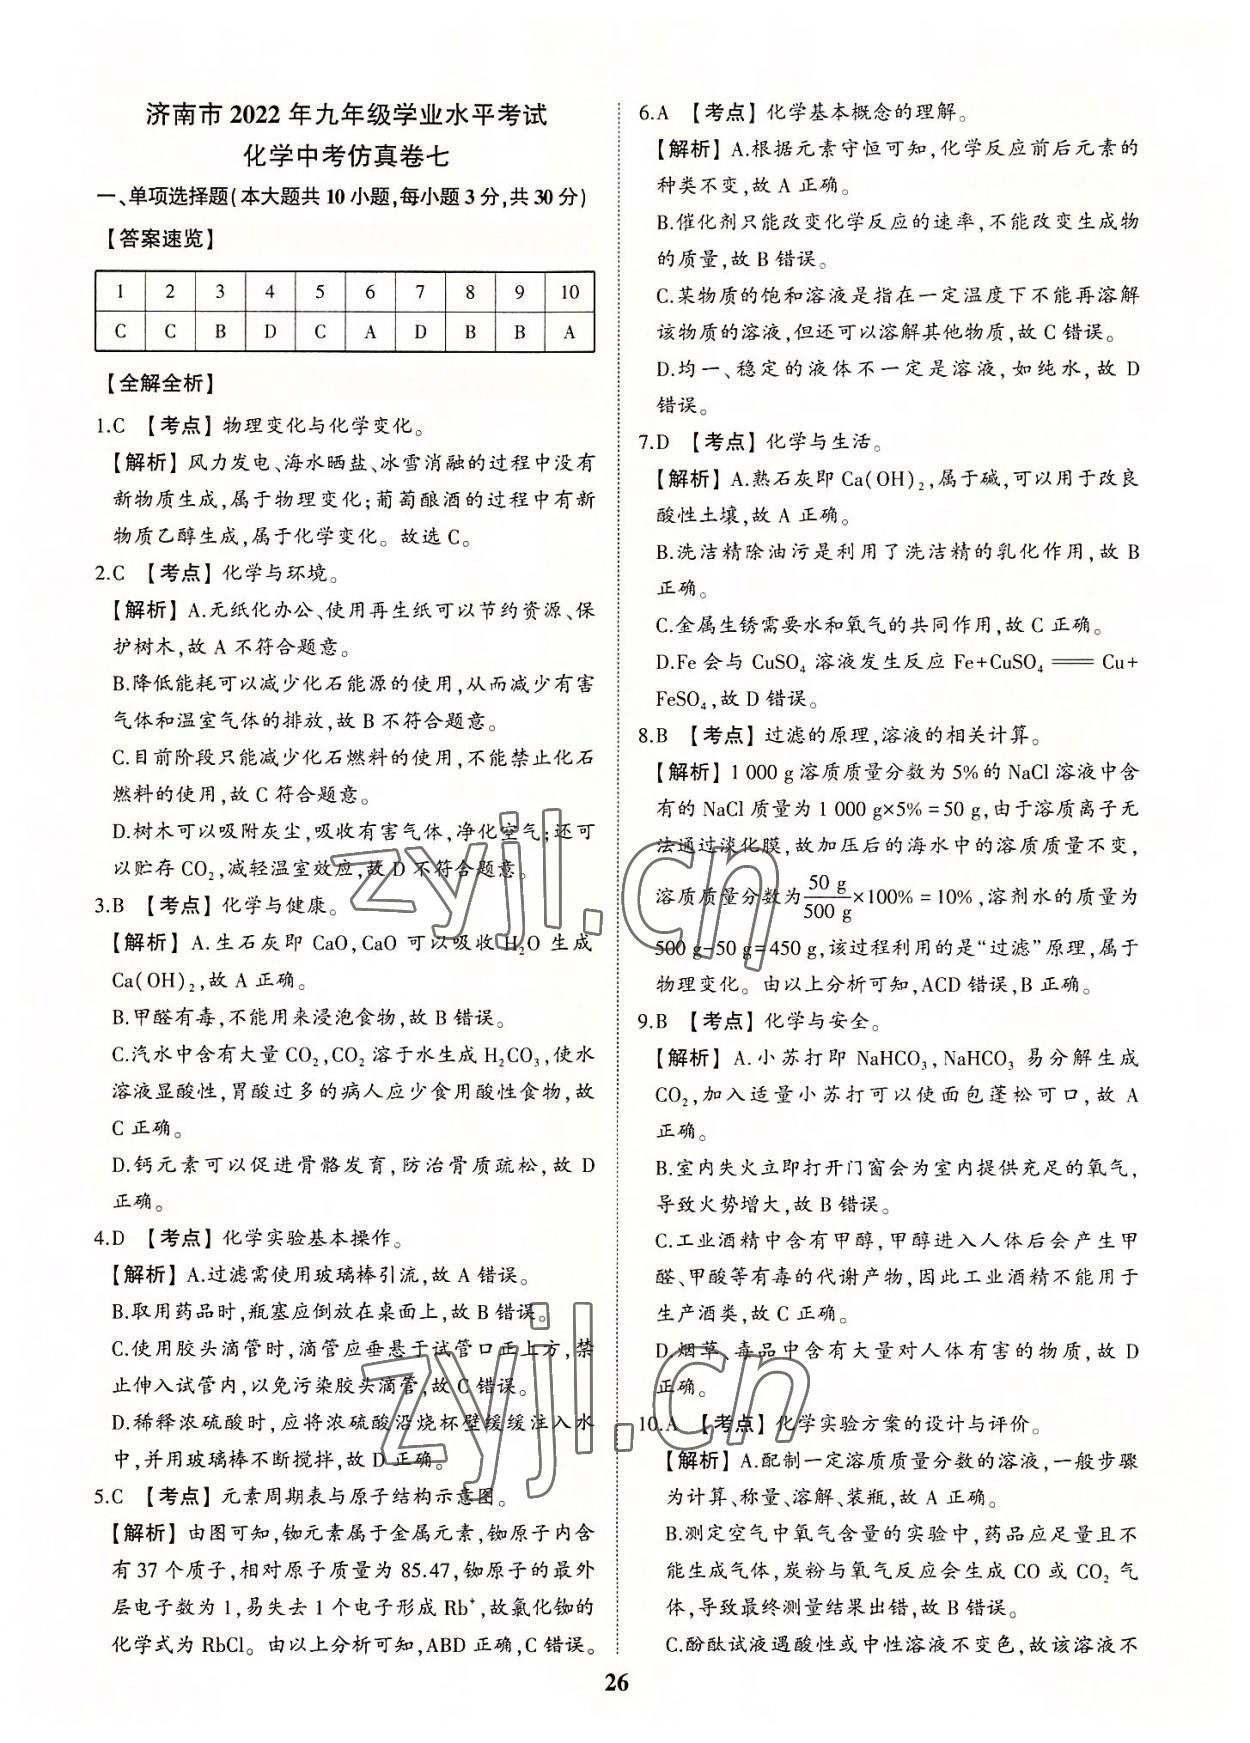 济南市 2022 年九年级学业水平考试
化学中考仿真卷七
一、单项选择题(本大题共 10 小题,每小题 3 分,共 30 分)
【答案速览】
1 2 3 4 5 6 7 8 9 10
C C B D C A D B B A
【全解全析】
1.C 【考点】物理变化与化学变化。
【解析】风力发电、海水晒盐、冰雪消融的过程中没有
新物质生成,属于物理变化;葡萄酿酒的过程中有新
物质乙醇生成,属于化学变化。故选 C。
2.C 【考点】化学与环境。
【解析】A.无纸化办公、使用再生纸可以节约资源、保
护树木,故 A 不符合题意。
B.降低能耗可以减少化石能源的使用,从而减少有害
气体和温室气体的排放,故 B 不符合题意。
C.目前阶段只能减少化石燃料的使用,不能禁止化石
燃料的使用,故 C 符合题意。
D.树木可以吸附灰尘,吸收有害气体,净化空气;还可
以贮存 CO₂,减轻温室效应,故 D 不符合题意。
3.B 【考点】化学与健康。
【解析】A.生石灰即 CaO,CaO 可以吸收 H₂O 生成
Ca(OH)₂,故 A 正确。
B.甲醛有毒,不能用来浸泡食物,故 B 错误。
C.汽水中含有大量 CO₂,CO₂ 溶于水生成 H₂CO₃,使水
溶液显酸性,胃酸过多的病人应少食用酸性食物,故
C 正确。
D.钙元素可以促进骨骼发育,防治骨质疏松,故 D
正确。
4.D 【考点】化学实验基本操作。
【解析】A.过滤需使用玻璃棒引流,故 A 错误。
B.取用药品时,瓶塞应倒放在桌面上,故 B 错误。
C.使用胶头滴管时,滴管应垂悬于试管口正上方,禁
止伸入试管内,以免污染胶头滴管,故 C 错误。
D.稀释浓硫酸时,应将浓硫酸沿烧杯壁缓缓注入水
中,并用玻璃棒不断搅拌,故 D 正确。
5.C 【考点】元素周期表与原子结构示意图。
【解析】由图可知,铷元素属于金属元素,铷原子内含
有 37 个质子,相对原子质量为 85.47,铷原子的最外
层电子数为 1,易失去 1 个电子形成 Rb⁺,故氯化铷的
化学式为 RbCl。由以上分析可知,ABD 正确,C 错误。
6.A 【考点】化学基本概念的理解。
【解析】A.根据元素守恒可知,化学反应前后元素的
种类不变,故 A 正确。
B.催化剂只能改变化学反应的速率,不能改变生成物
的质量,故 B 错误。
C.某物质的饱和溶液是指在一定温度下不能再溶解
该物质的溶液,但还可以溶解其他物质,故 C 错误。
D.均一、稳定的液体不一定是溶液,如纯水,故 D
错误。
7.D 【考点】化学与生活。
【解析】A.熟石灰即 Ca(OH)₂,属于碱,可以用于改良
酸性土壤,故 A 正确。
B.洗洁精除油污是利用了洗洁精的乳化作用,故 B
正确。
C.金属生锈需要水和氧气的共同作用,故 C 正确。
D.Fe 会与 CuSO₄ 溶液发生反应 Fe+CuSO₄ ══ Cu+
FeSO₄,故 D 错误。
8.B 【考点】过滤的原理,溶液的相关计算。
【解析】1 000 g 溶质质量分数为 5%的 NaCl 溶液中含
有的 NaCl 质量为 1 000 g×5% = 50 g,由于溶质离子无
法通过淡化膜,故加压后的海水中的溶质质量不变,
溶质质量分数为 50 g/500 g ×100% = 10%,溶剂水的质量为
500 g-50 g=450 g,该过程利用的是“过滤”原理,属于
物理变化。由以上分析可知,ACD 错误,B 正确。
9.B 【考点】化学与安全。
【解析】A.小苏打即 NaHCO₃,NaHCO₃ 易分解生成
CO₂,加入适量小苏打可以使面包蓬松可口,故 A
正确。
B.室内失火立即打开门窗会为室内提供充足的氧气,
导致火势增大,故 B 错误。
C.工业酒精中含有甲醇,甲醇进入人体后会产生甲
醛、甲酸等有毒的代谢产物,因此工业酒精不能用于
生产酒类,故 C 正确。
D.烟草、毒品中含有大量对人体有害的物质,故 D
正确。
10.A 【考点】化学实验方案的设计与评价。
【解析】A.配制一定溶质质量分数的溶液,一般步骤
为计算、称量、溶解、装瓶,故 A 正确。
B.测定空气中氧气含量的实验中,药品应足量且不
能生成气体,炭粉与氧气反应会生成 CO 或 CO₂ 气
体,导致最终测量结果出错,故 B 错误。
C.酚酞试液遇酸性或中性溶液不变色,故该溶液不
26
zyjl.cn
zyjl.cn